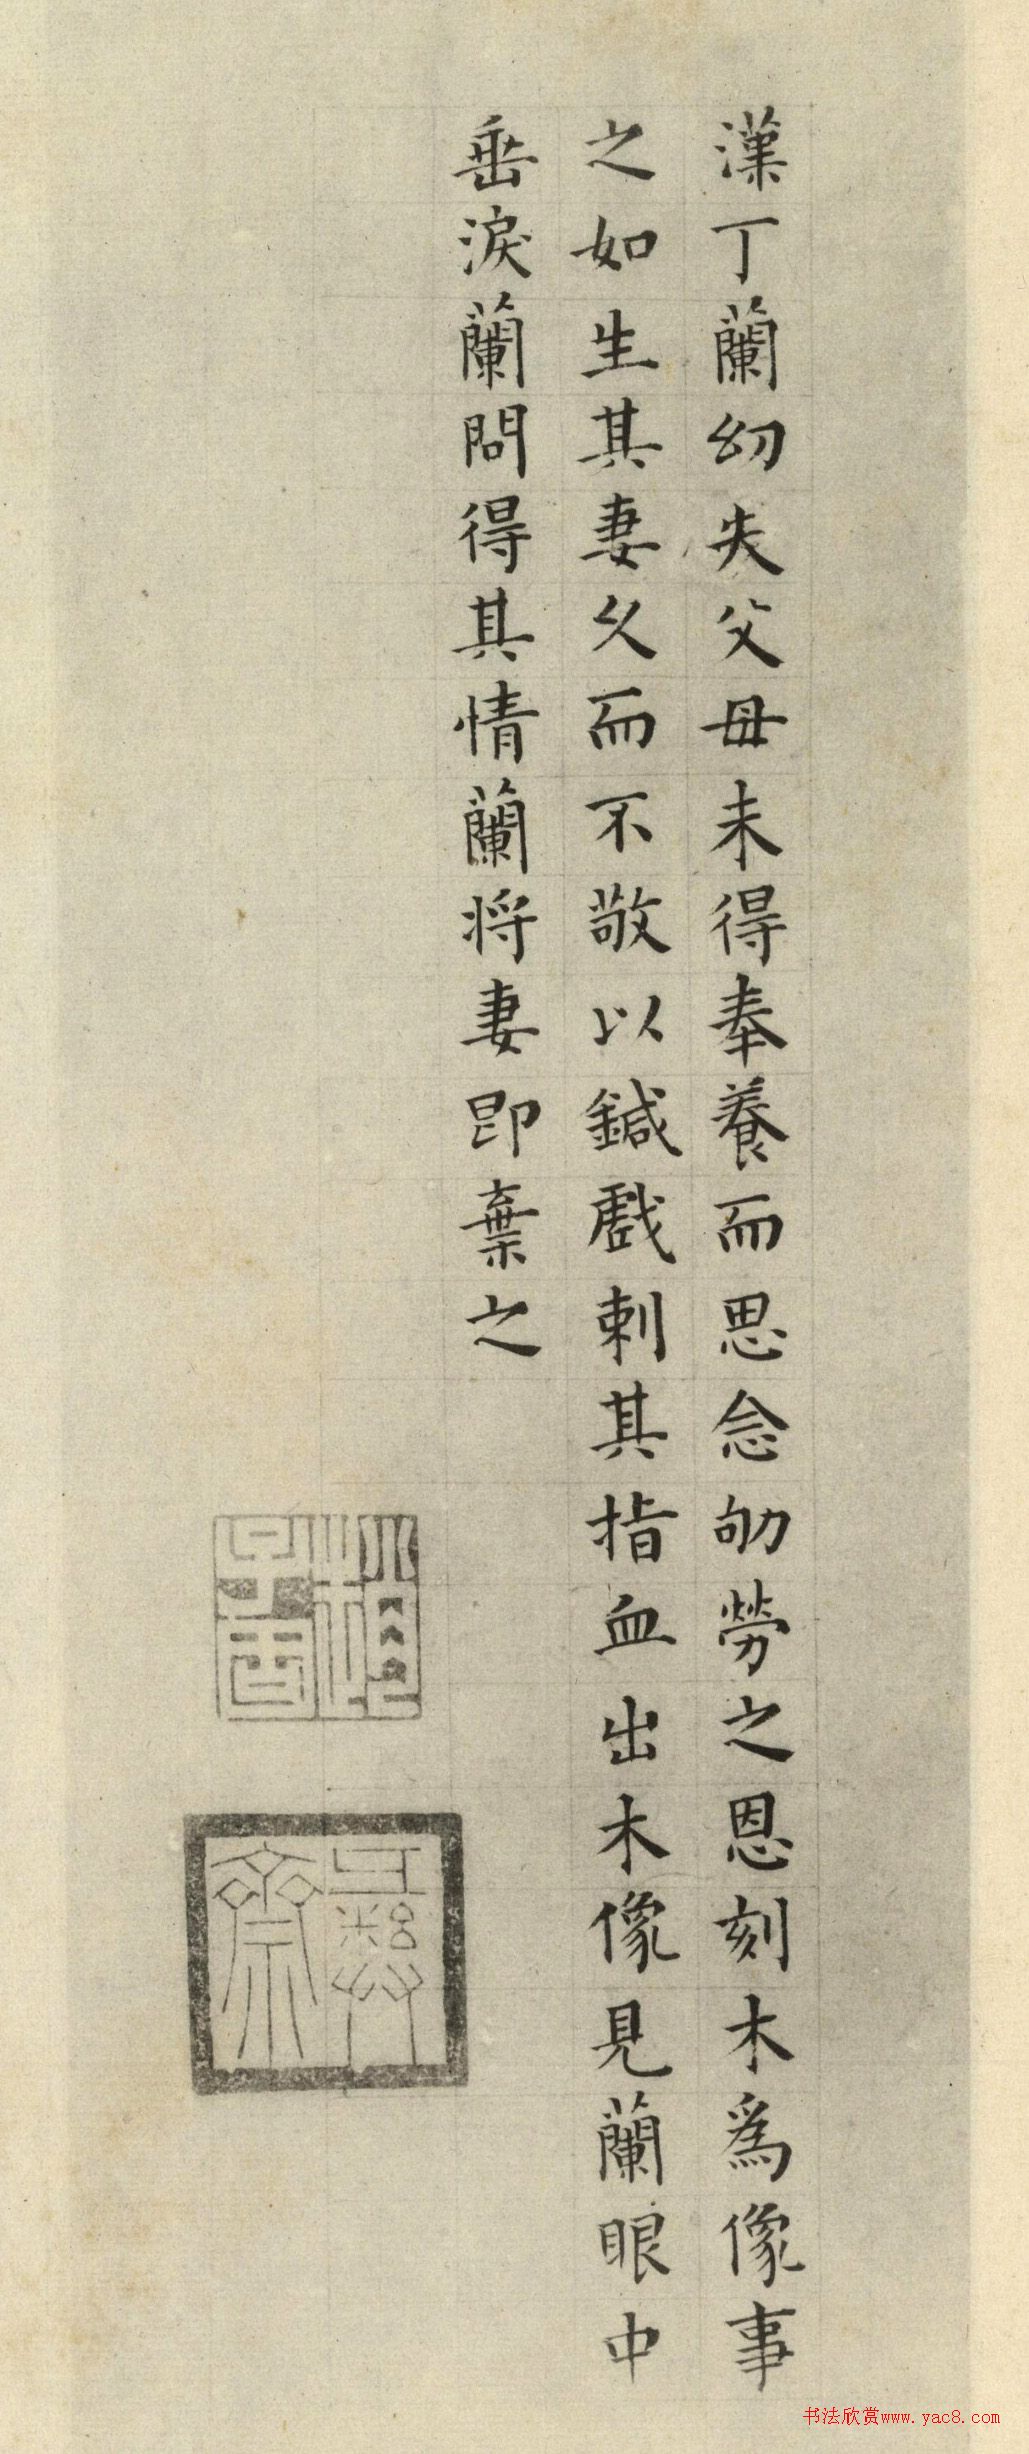 漢丁蘭幼失父母未得奉養而思念劬勞之恩刻木爲像事
之如生其妻久而不敬以鍼戲刺其指血出木像見蘭眼中
垂淚蘭問得其情蘭將妻即棄之
书法欣赏www.yac8.com